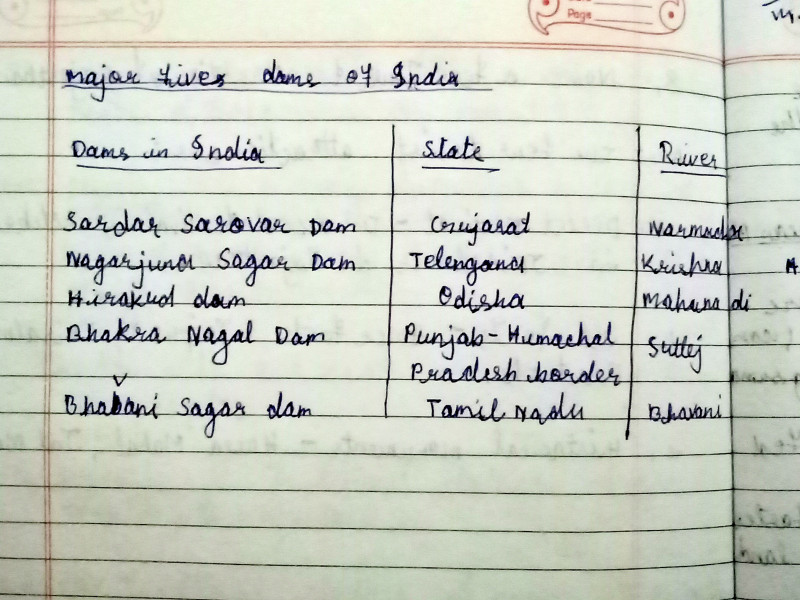 Page
major fives dams of India
Dams in India State River
Sardar Sarovar Dam Gujarat Narmada
Nagarjuna Sagar Dam Telengana Krishna
Hirakud dam Odisha Mahanadi
Bhakra Nagal Dam Punjab-Humachal Sutlej
Pradesh border
v
Bhabani Sagar dam Tamil Nadu Bhavani